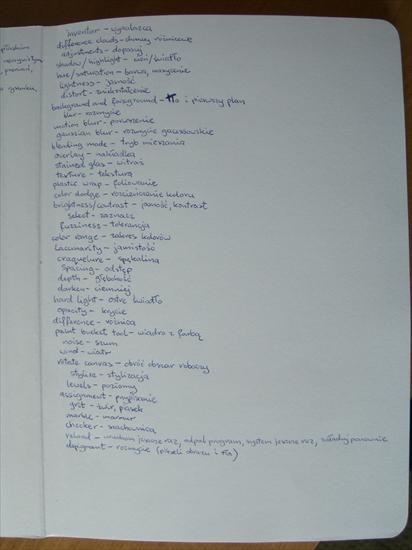 inventor - wynalazca
difference clouds - chmury różnicowe
adjustments - dopasuj
shadow/highlight - cień/światło
hue/saturation - barwa, nasycenie
lightness - jasność
distort - zniekształcenie
background and foreground - tło i pierwszy plan
blur - rozmycie
motion blur - poruszenie
gaussian blur - rozmycie gaussowskie
blending mode - tryb mieszania
overlay - nakładka
stained glas - witraż
texture - tekstura
plastic wrap - foliowanie
color dodge - rozcieńczenie koloru
brightness/contrast - jasność, kontrast
select - zaznacz
fuzziness - tolerancja
color range - zakres kolorów
lacunarity - jamistość
craquelure - spękalina
spacing - odstęp
depth - głębokość
darken - ciemniej
hard light - ostre światło
opacity - krycie
difference - różnica
paint bucket tool - wiadro z farbą
noise - szum
wind - wiatr
rotate canvas - obróć obszar roboczy
stylize - stylizacja
levels - poziomy
assignment - przypisanie
grit - żwir, piasek
marble - marmur
checker - szachownica
reload - uruchom jeszcze raz, odpal program, system jeszcze raz, załaduj ponownie
depigment - rozmycie (pikseli obrazu i tła)